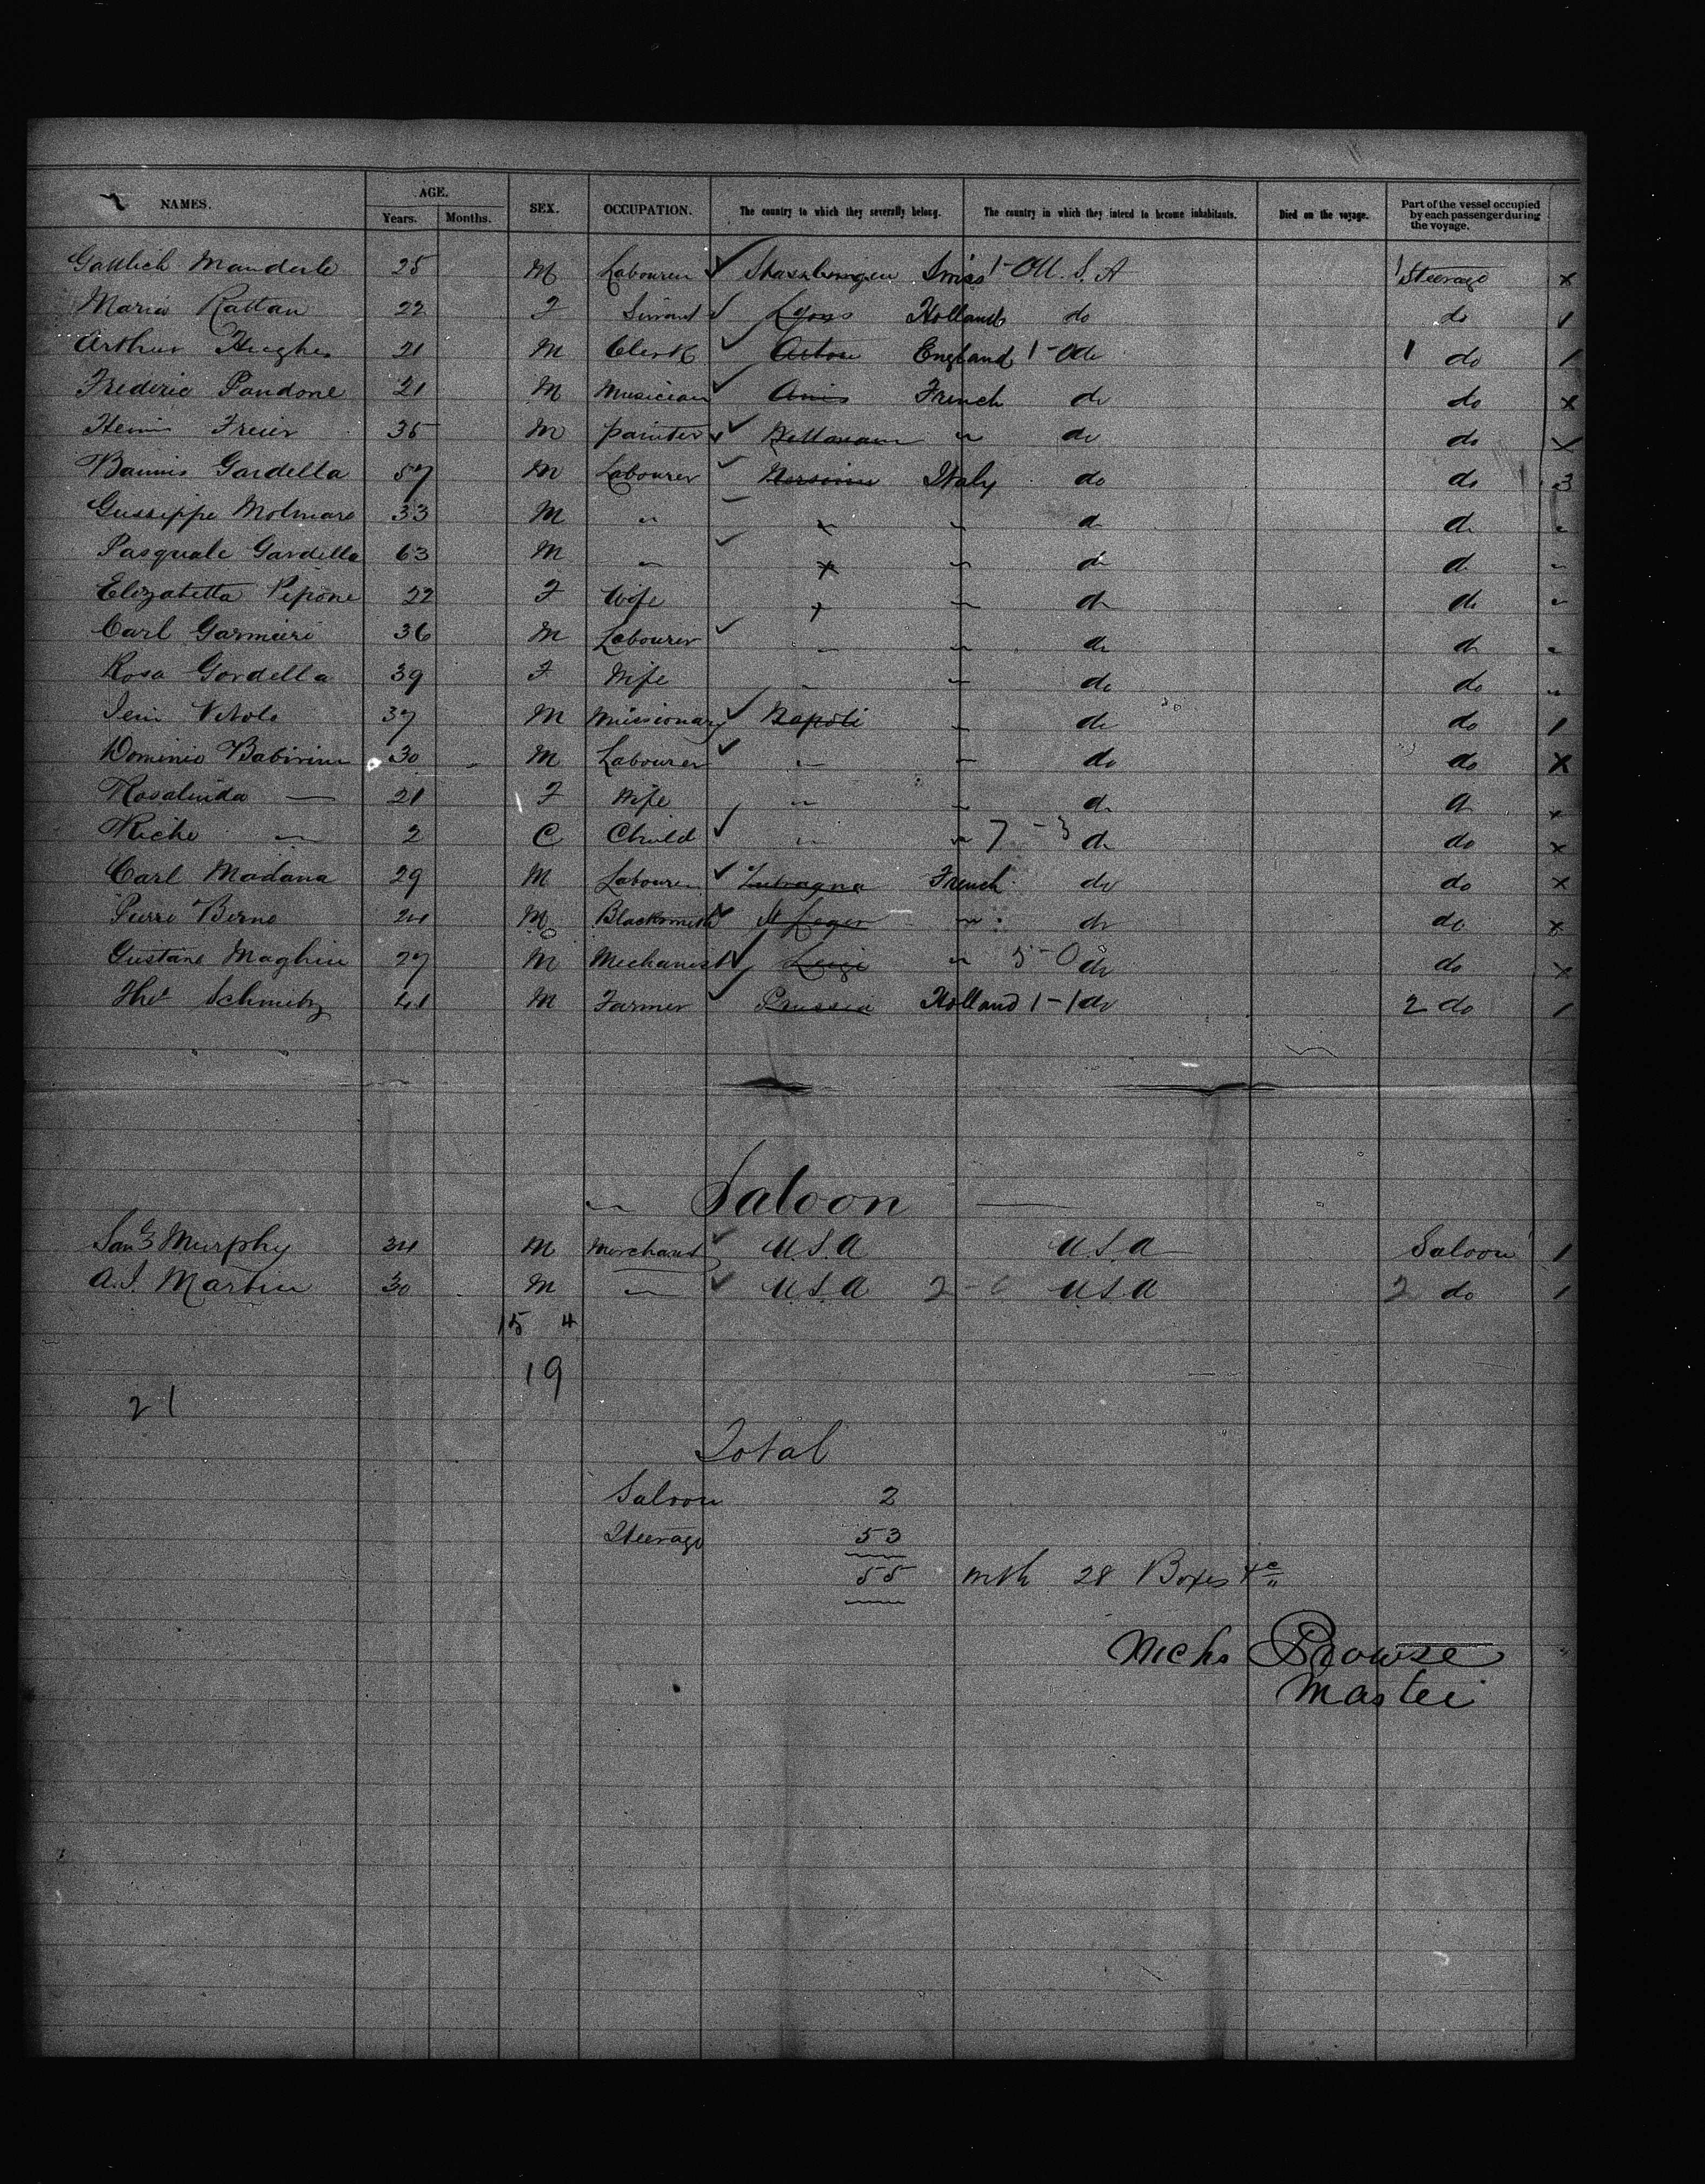 NAMES. AGE. Years. Months. SEX. OCCUPATION. The country to which they severally belong. The country in which they intend to become inhabitants. Died on the voyage. Part of the vessel occupied by each passenger during the voyage.
Gottlieb Manderle 25 M Labourer ✓ Swiss 1-0 U.S.A 1 Steerage x
Maria Rattan 22 F Servant ✓ Lyons Holland do do 1
Arthur Hughes 21 M Clerk ✓ England 1-0 do 1 do 1
Frederic Pandone 21 M Musician ✓ French do do x
Freier 35 M painter ✓ " do do x
Gardella 57 M Labourer ✓ Italy do do 3
Gussippe Molinare 33 M " " " do do "
Pasquale Gardella 63 M " ✓ " " do do "
Elizabetta Pepone 22 F Wife " " do do "
Carl Garmieri 36 M Labourer ✓ " " do do "
Rosa Gordella 39 F Wife " " do do "
Vitolo 37 M Missionary ✓ Napoli " do do 1
Dominio Babirini 30 M Labourer ✓ " " do do x
Rosalinda — 21 F Wife " " do do x
Riche " 2 C Child ✓ " " 7-3 do do x
Carl Madana 29 M Labourer ✓ French do do x
Pierre Berno 24 M Blacksmith ✓ St Leger " do do x
Gustane Maghin 27 M Mechanist ✓ " 5-0 do do x
Schmitz 41 M Farmer ✓ Prussia Holland 1-1 do 2 do 1
" Saloon —
Murphy 34 M Merchant ✓ U.S.A U.S.A Saloon 1
A.J. Martin 30 M " ✓ U.S.A 2-0 U.S.A 2 do 1
15 4
19
21
Total
Saloon 2
Steerage 53
55 with 28 Boxes &c
Nichs Prowse
Master